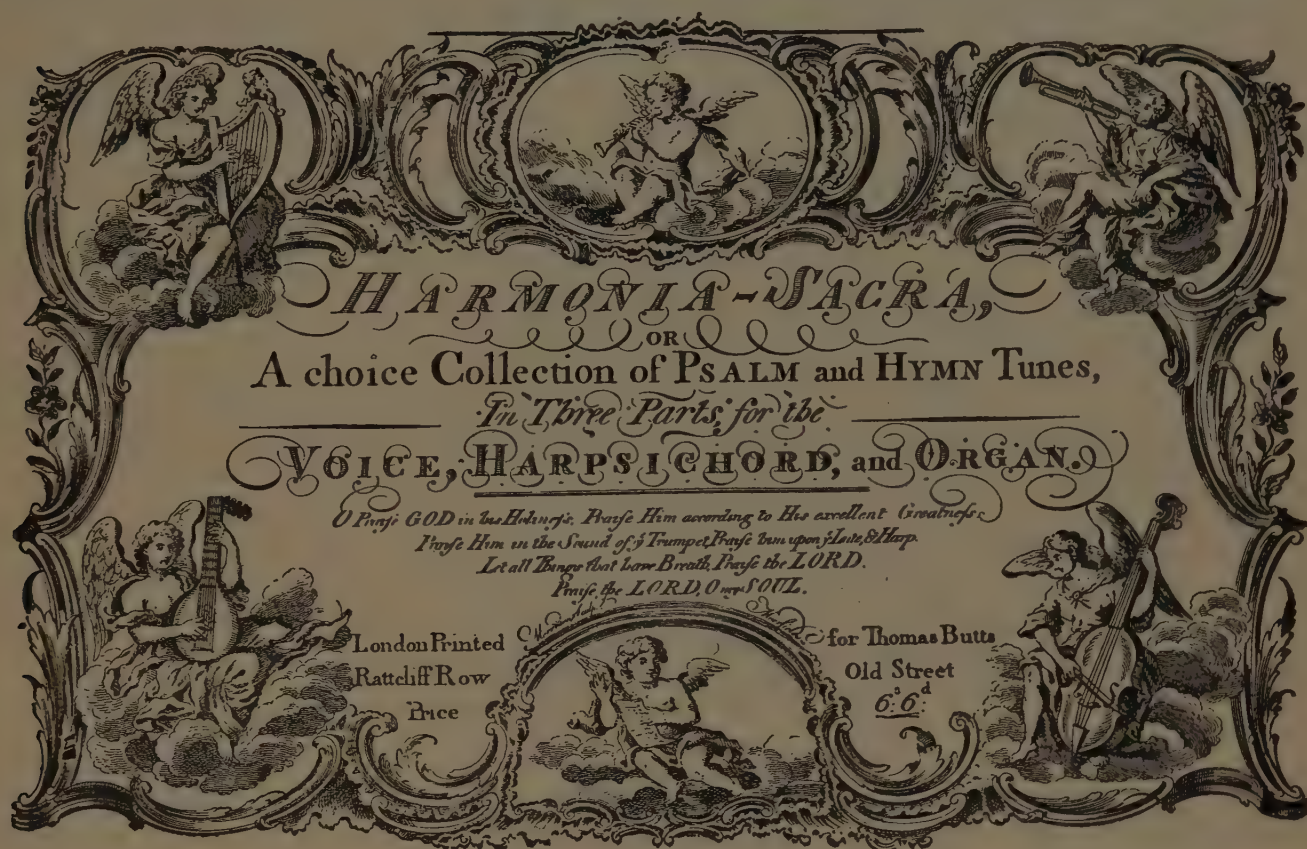 HARMONIA-SACRA,
OR
A choice Collection of PSALM and HYMN Tunes,
In Three Parts, for the
VOICE, HARPSICHORD, and ORGAN.
O Praise GOD in his Holineſs, Praiſe Him according to His excellent Greatneſs;
Praiſe Him in the Sound of yͤ Trumpet, Praiſe him upon yͤ Lute, & Harp.
Let all Things that have Breath, Praiſe the LORD.
Praiſe the LORD, O my SOUL.
London Printed for Thomas Butts
Rattcliff Row Old Street
Price 6ˢ: 6ᵈ: